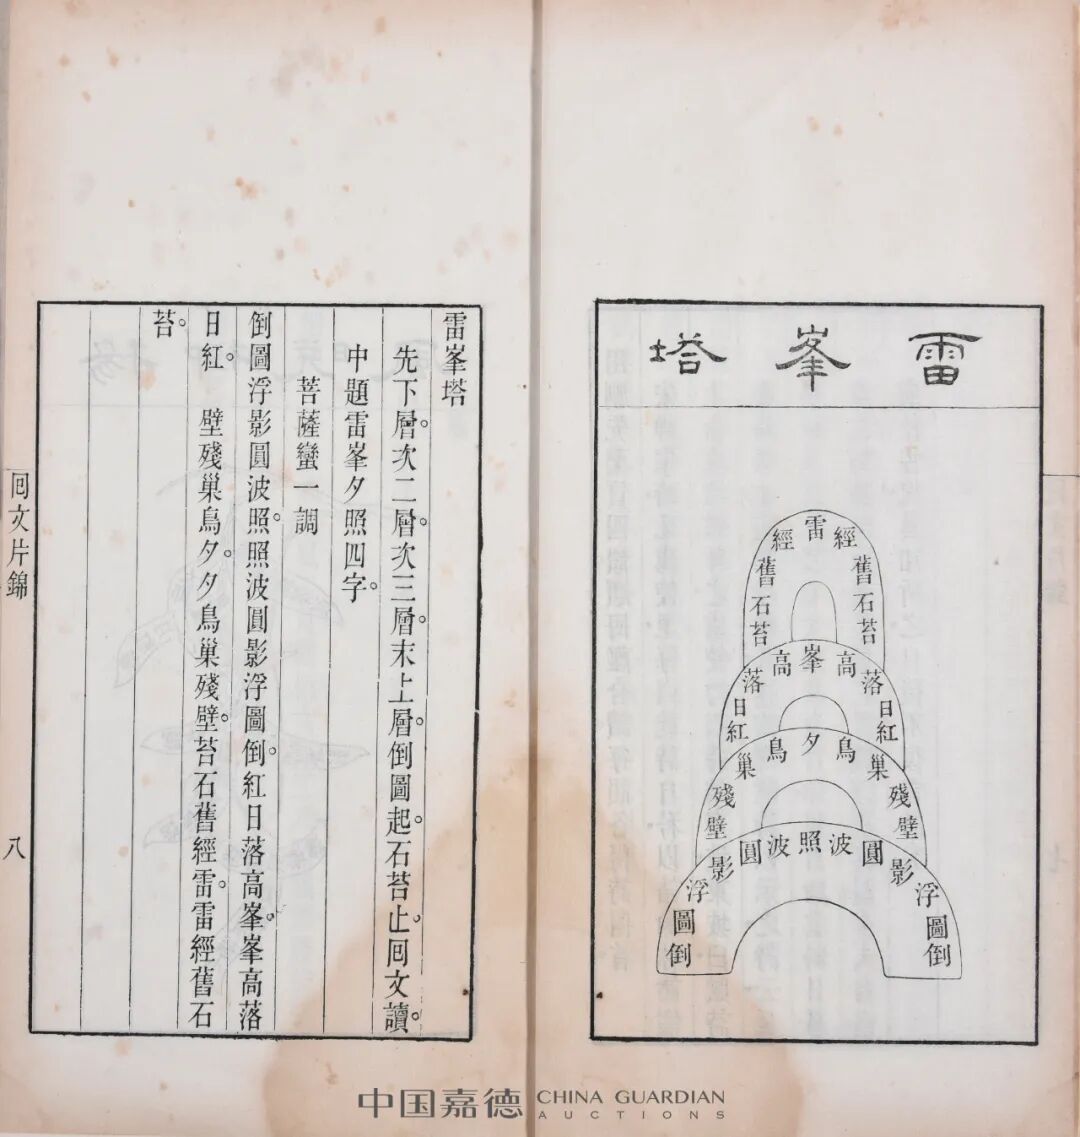 雷峯塔
苔石舊經雷經舊石苔
紅日落高峯高落日紅
壁殘巢鳥夕鳥巢殘壁
倒圖浮影圓波照波圓影浮圖倒
雷峯塔
先下層。次二層。次三層。末上層。倒圖起。石苔止。囘文讀。
中題雷峯夕照四字。
菩薩蠻一調
倒圖浮影圓波照。照波圓影浮圖倒。紅日落高峯。峯高落
日紅。 壁殘巢鳥夕。夕鳥巢殘壁。苔石舊經雷。雷經舊石
苔。
囘文片錦 八
中国嘉德 CHINA GUARDIAN
AUCTIONS